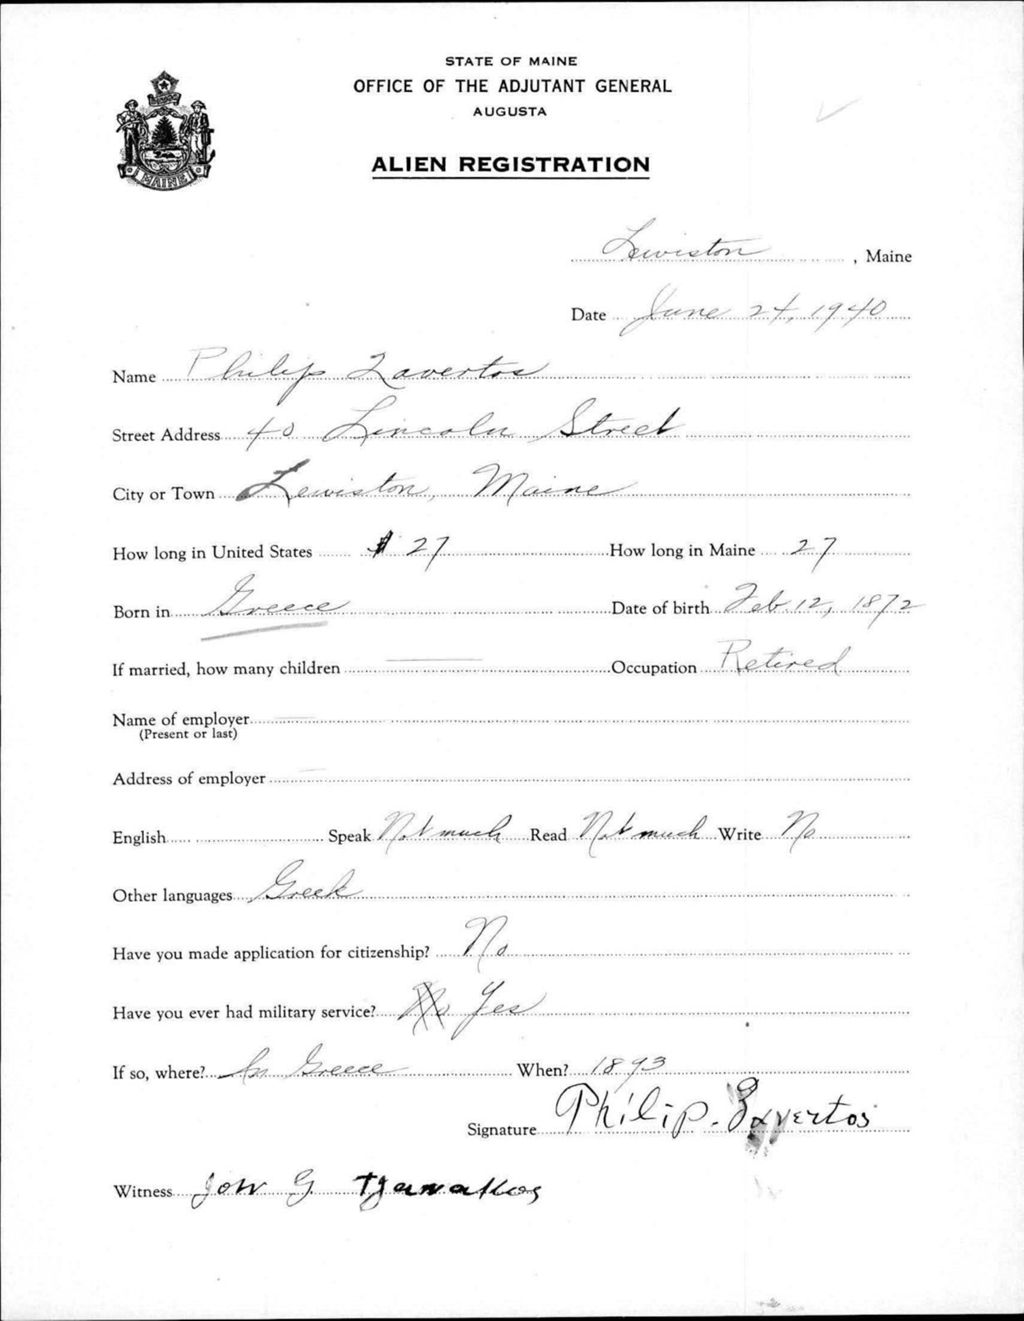 STATE OF MAINE
OFFICE OF THE ADJUTANT GENERAL
AUGUSTA
MAINE
ALIEN REGISTRATION
Lewiston, Maine
Date June 24, 1940
Name Philip Zavertos
Street Address 40 Lincoln Street
City or Town Lewiston, Maine
How long in United States 27 How long in Maine 27
Born in Greece Date of birth Feb. 12, 1872
If married, how many children — Occupation Retired
Name of employer —
(Present or last)
Address of employer —
English Speak Not much Read Not much Write No
Other languages Greek
Have you made application for citizenship? No
Have you ever had military service? No Yes
If so, where? In Greece When? 1893
Signature Philip. Zavertos
Witness John G